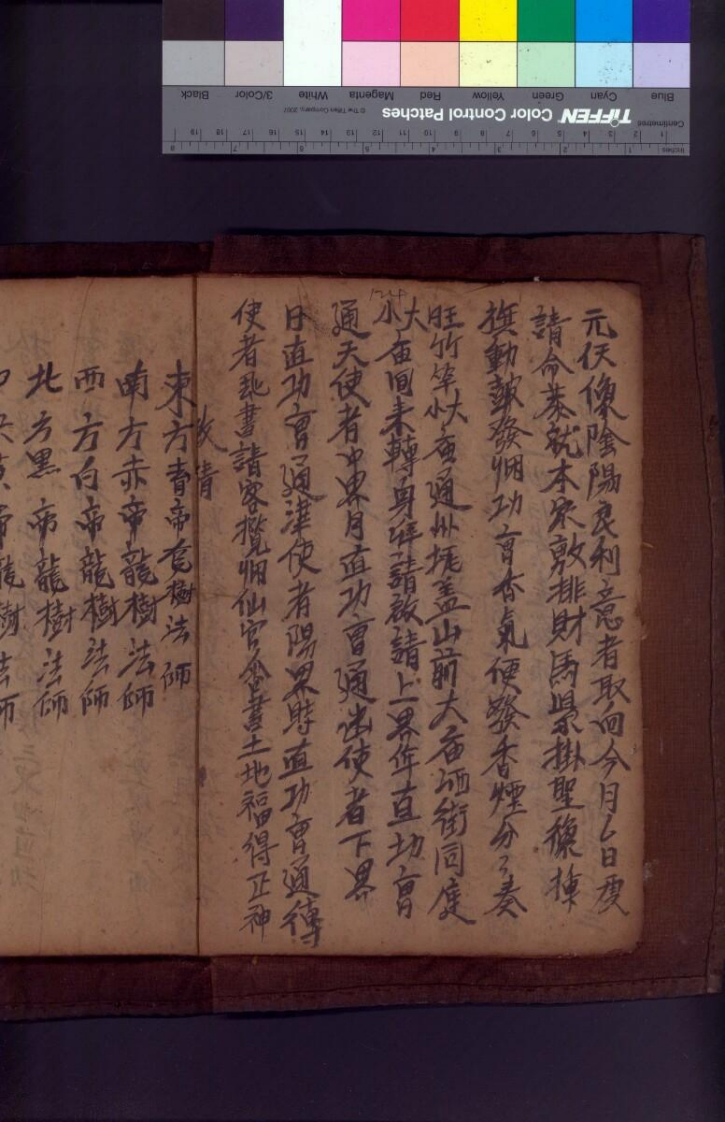 元伏像陰陽良利意者取向今月厶日虔
請命恭就本家敷排財馬景掛聖像揮
旗動皷發炯功曹香氣便發香煙分々奏
旺竹竿大小庙通州挜盖山前大庙洒街同庭
大小庙回来轉身拜請啟請上界年直功曹
通天使者中界月直功曹通幽使者下界
日直功曹通津使者陽界時直功曹通傳
使者飛書請客攬炯仙官會書土地福得正神
啟請
東方青帝竜樹法師
南方赤帝龍樹法師
西方白帝龍樹法師
北方黑帝龍樹法師
帝龍樹法師
Blue Cyan Green Yellow Red Magenta White 3/Color Black
Centimetres TIFFEN Color Control Patches © The Tiffen Company, 2007
1 2 3 4 5 6 7 8 9 10 11 12 13 14 15 16 17 18 19
Inches 1 2 3 4 5 6 7 8